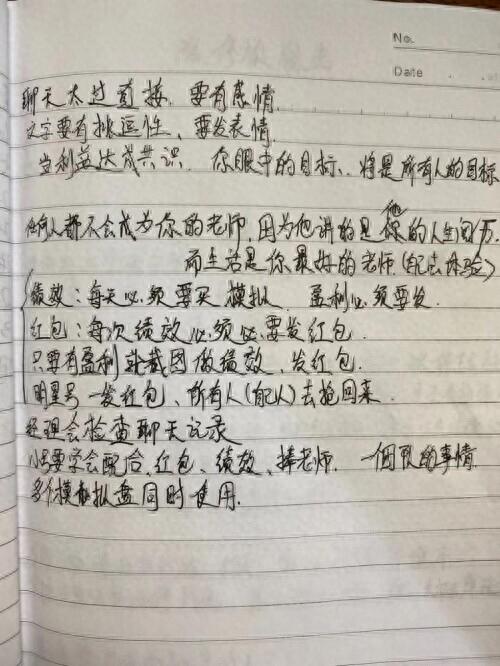 No.
Date
聊天太过直接、要有感情
文字要有挑逗性、要发表情
当利益达成共识、你眼中的目标、将是所有人的目标
任何人都不会成为你的老师、因为他讲的是他的人生阅历.
而生活是你最好的老师(配去体验)
绩效:每天必须要买模拟、盈利必须要发.
红包:每次绩效必须必要发红包.
只要有盈利就截图做绩效、发红包.
明星号一发红包、所有人(自己人)去抢回来.
经理会检查聊天记录
小号要学会配合、红包、绩效、捧老师. 一个团队的事情.
多个模拟盘同时使用.